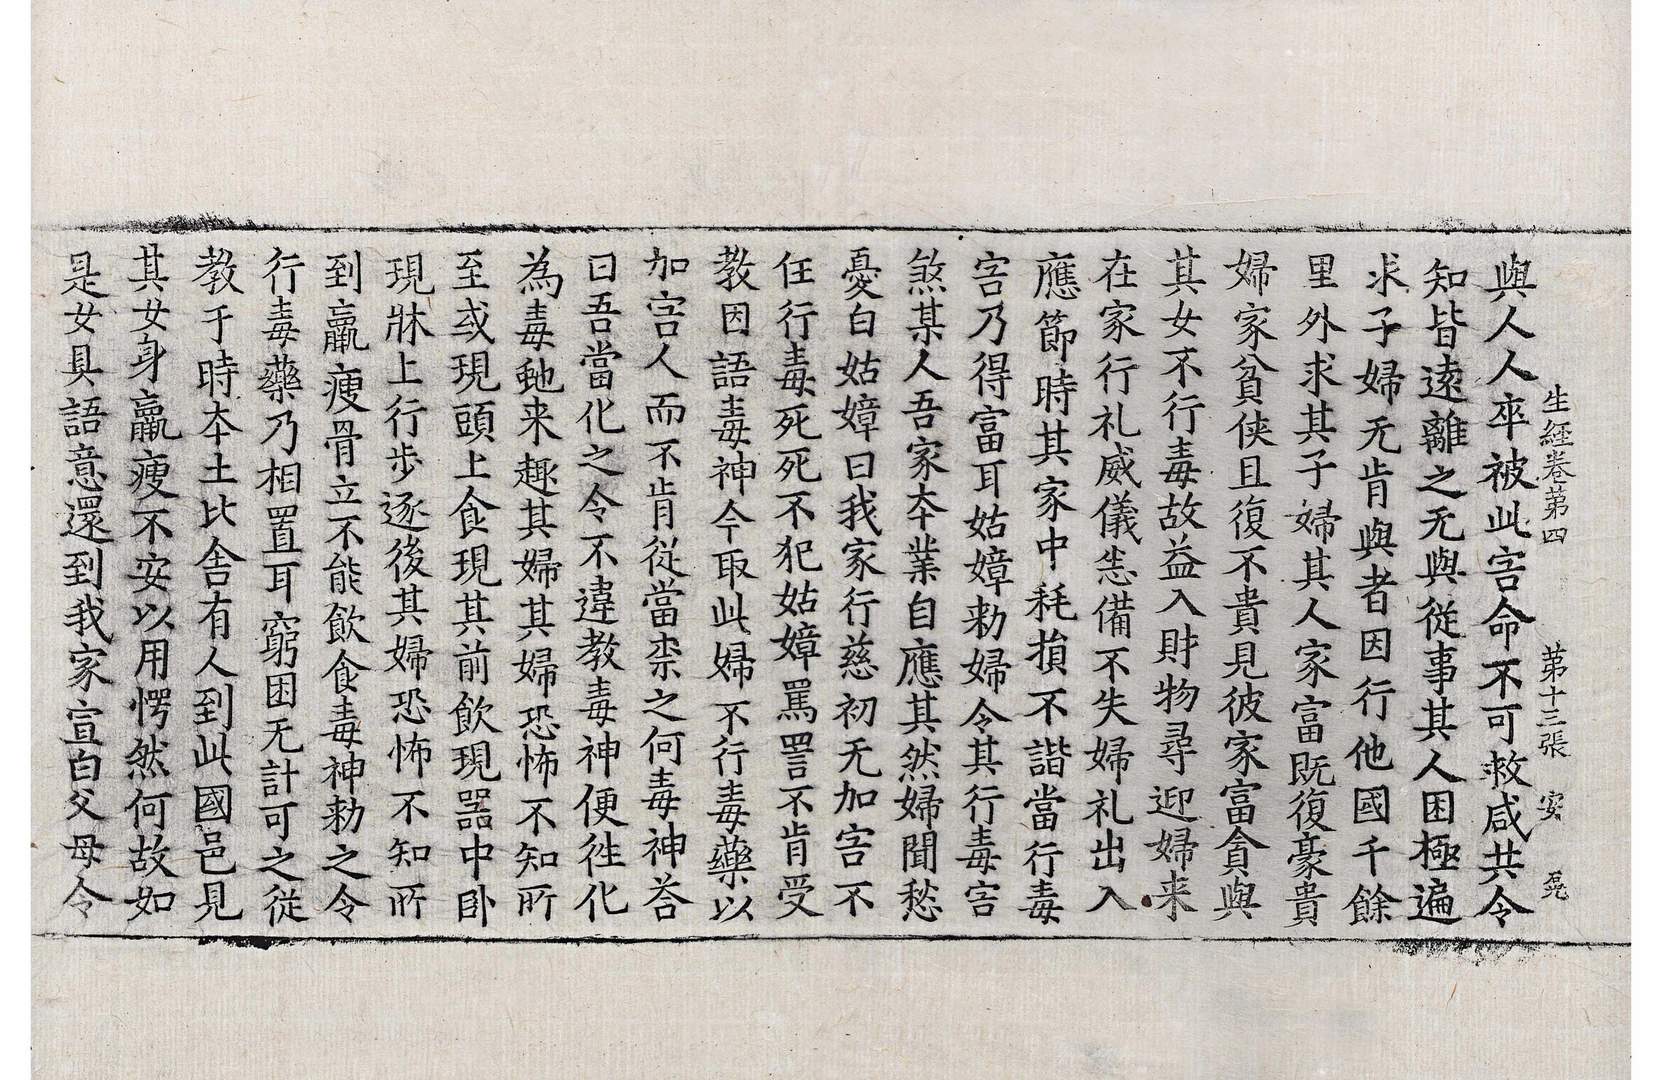 生經卷第四 第十三張 安 㒯
與人人卒被此害命不可救咸共令
知皆遠離之无與從事其人困極遍
求子婦无肯與者因行他國千餘
里外求其子婦其人家富既復豪貴
婦家貧俠且復不貴見彼家富貪與
其女不行毒故益入財物尋迎婦来
在家行礼威儀恙備不失婦礼出入
應節時其家中耗損不諧當行毒
害乃得富耳姑嫜勑婦令其行毒害
煞某人吾家夲業自應其然婦聞愁
憂白姑嫜曰我家行慈初无加害不
任行毒死死不犯姑嫜罵詈不肯受
教因語毒神今取此婦不行毒藥以
加害人而不肯從當柰之何毒神荅
曰吾當化之令不違教毒神便徃化
為毒虵来趣其婦其婦恐怖不知所
至或現頭上食現其前飲現器中卧
現牀上行步逐後其婦恐怖不知所
到羸瘦骨立不能飲食毒神勑之令
行毒藥乃相置耳窮困无計可之從
教于時夲土比舎有人到此國邑見
其女身羸瘦不安以用愕然何故如
是女具語意還到我家宣白父母令